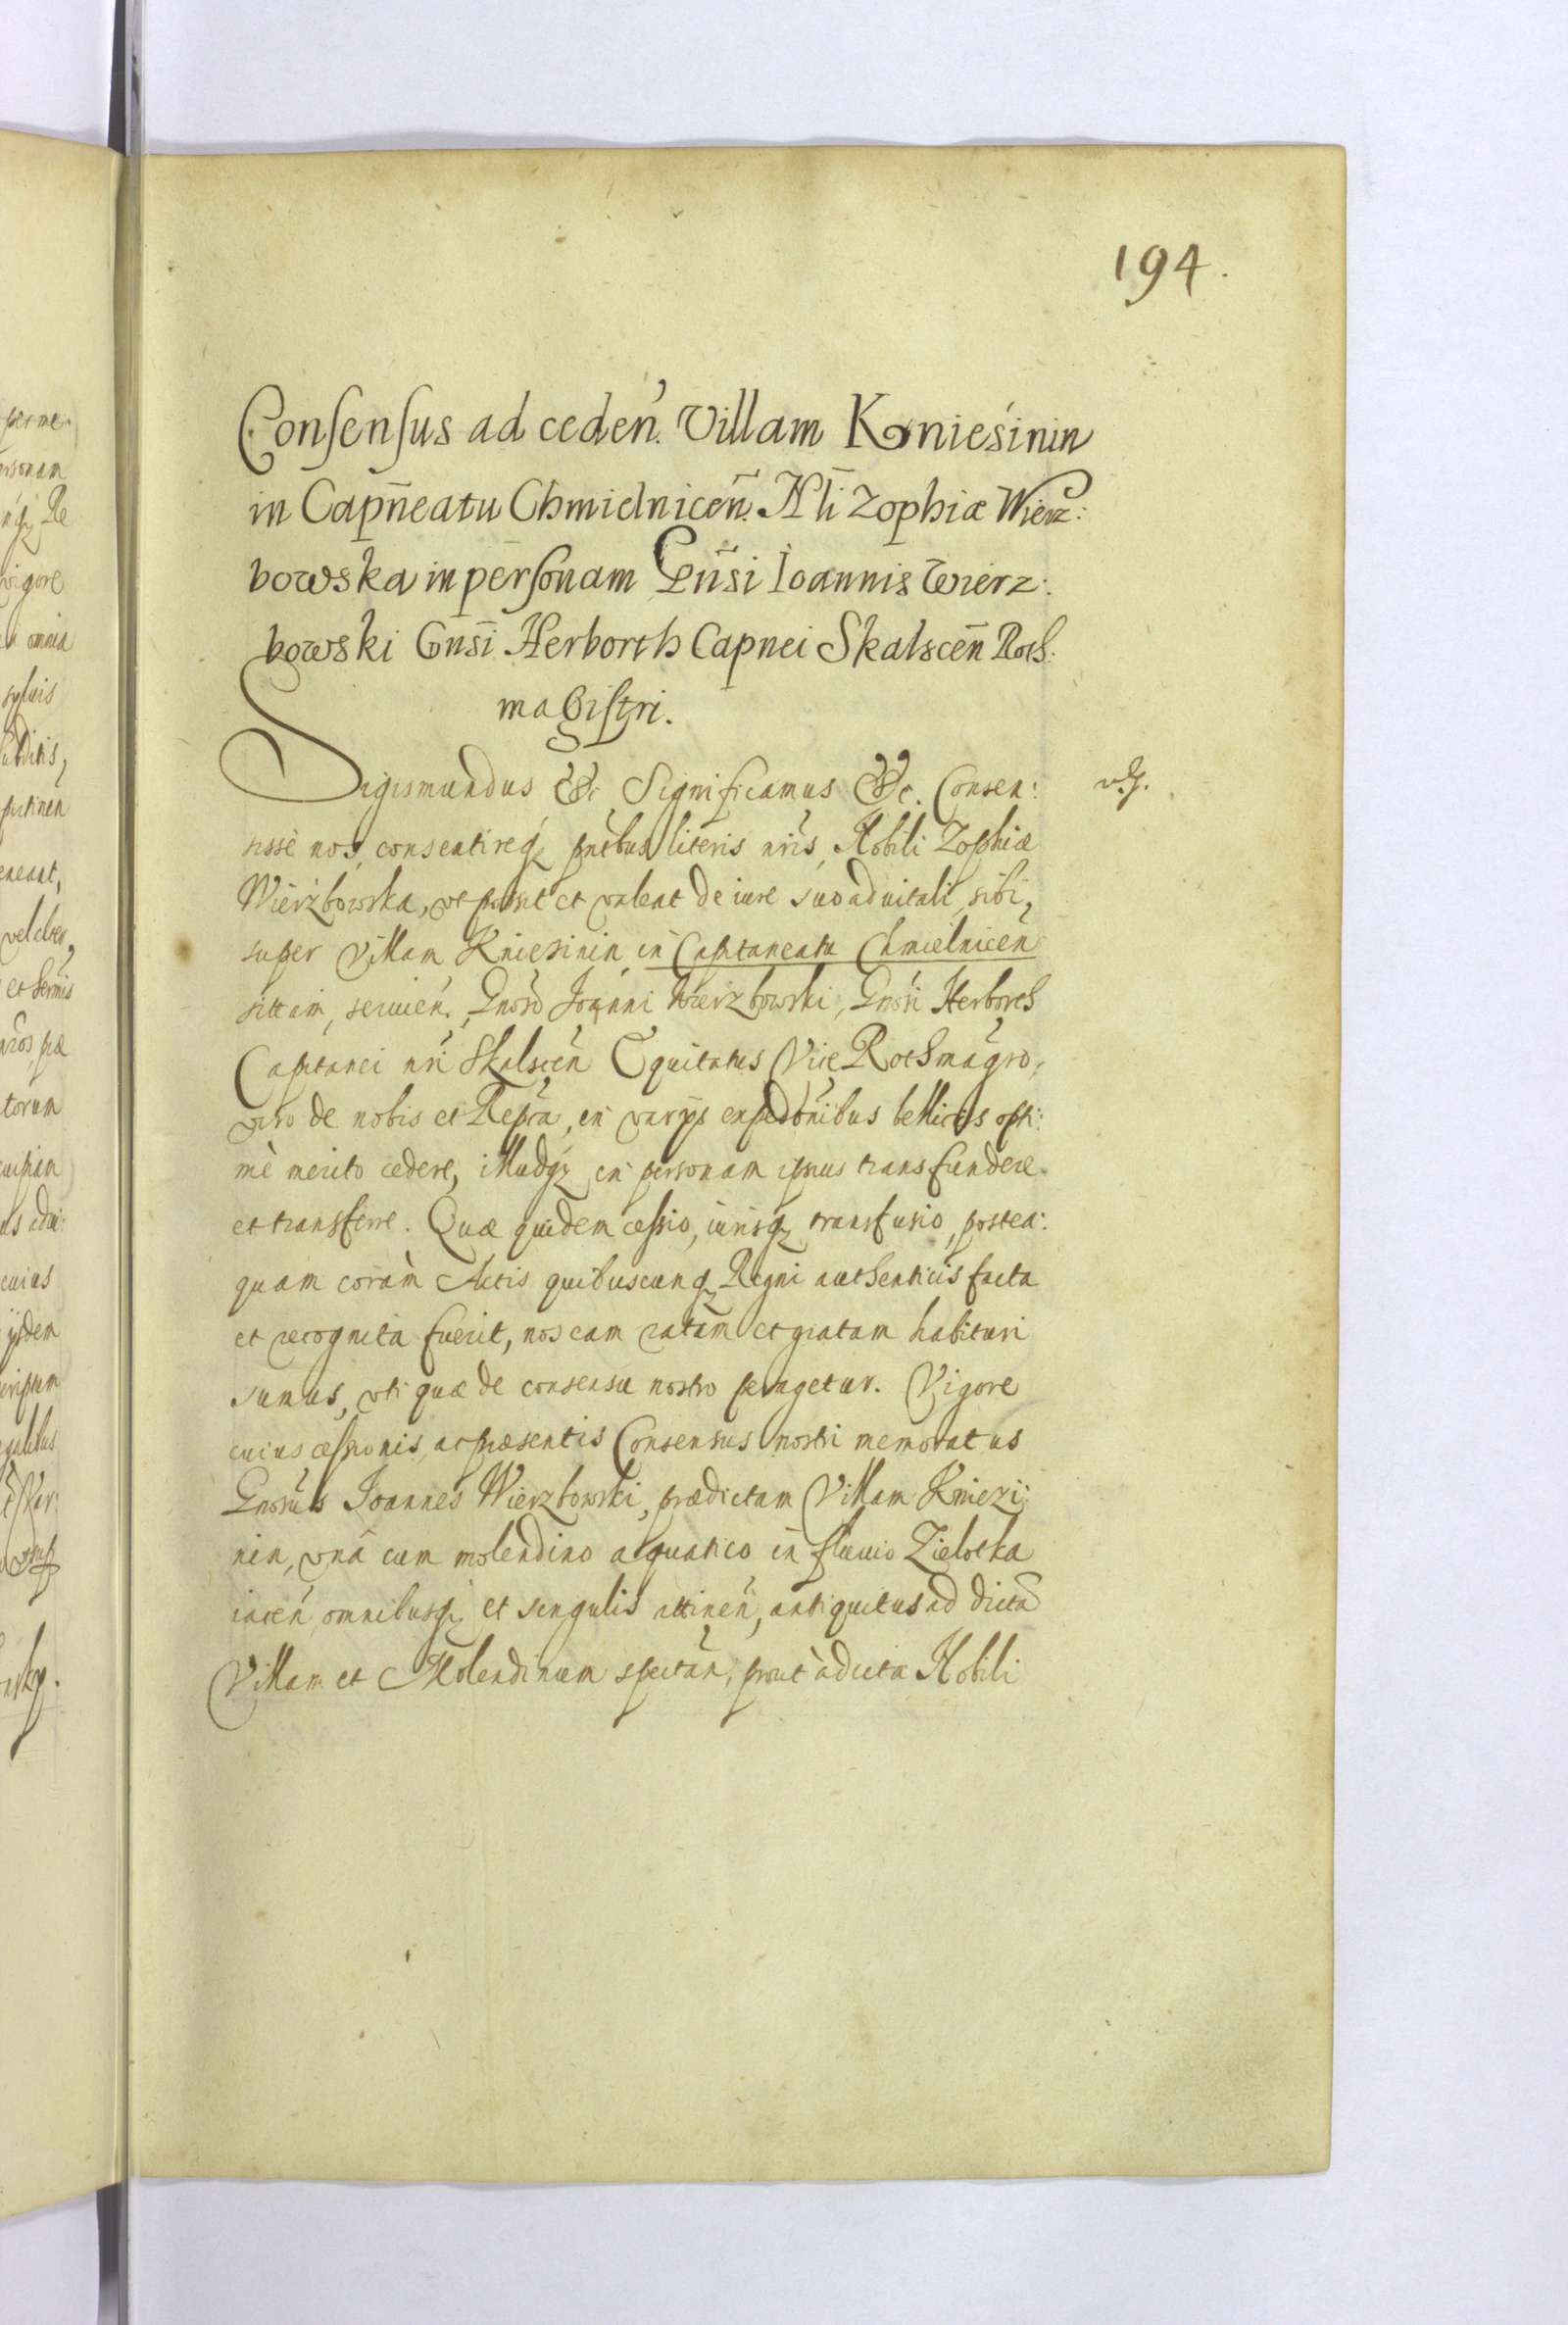 194.
Consensus ad ceden̄. Villam Kniesinin
in Capn̄eatu Chmielnicen̄. Nli Zophiæ Wierz:
bowska in personam Gn̄si Ioannis Wierz:
bowski Gnsi Herborth Capnei Skalscen̄ Roth:
magistri.
Sigismundus &c Significamus &c. Consen:
sisse nos, consentireq̃ pñtibus literis nr̃is, Nobili Zophiæ
Wierzbowska, vt possit et valeat de iure suo aduitali, sibi,
super Villam Kniesinin in Capitaneatu Chmielnicen̄
sittam, seruien̄. Gnoso Joanni Wierzbowski, Gnosi Herborth
Capitanei nr̃i Skalscen̄ Equitatus Vice Rothmagro,
viro de nobis et Repca, in varijs expeditõnibus bellicis opti:
mè merito cedere, illudq̃ in personam ipsius transfundere
et transferre. Quæ quidem cessio, iurisq̃ transfusio, postea:
quam coràm Actis quibuscunq̃ Regni authenticis facta
et recognita fuerit, nos eam ratam et gratam habituri
sumus, vti quæ de consensu nostro peragetur. Vigore
cuius cessionis, ac præsentis Consensus nostri memoratus
Gnosus Ioannes Wierzbowski, prædictam Villam Kniezij
nin, vnà cum molendino aquatico in fluuio Zielotka
iacen̄ omnibusq̃ et singulis attinen̄, antiquitus ad dictã
Villam et Molendinum spectan̄, prout à dicta Nobili